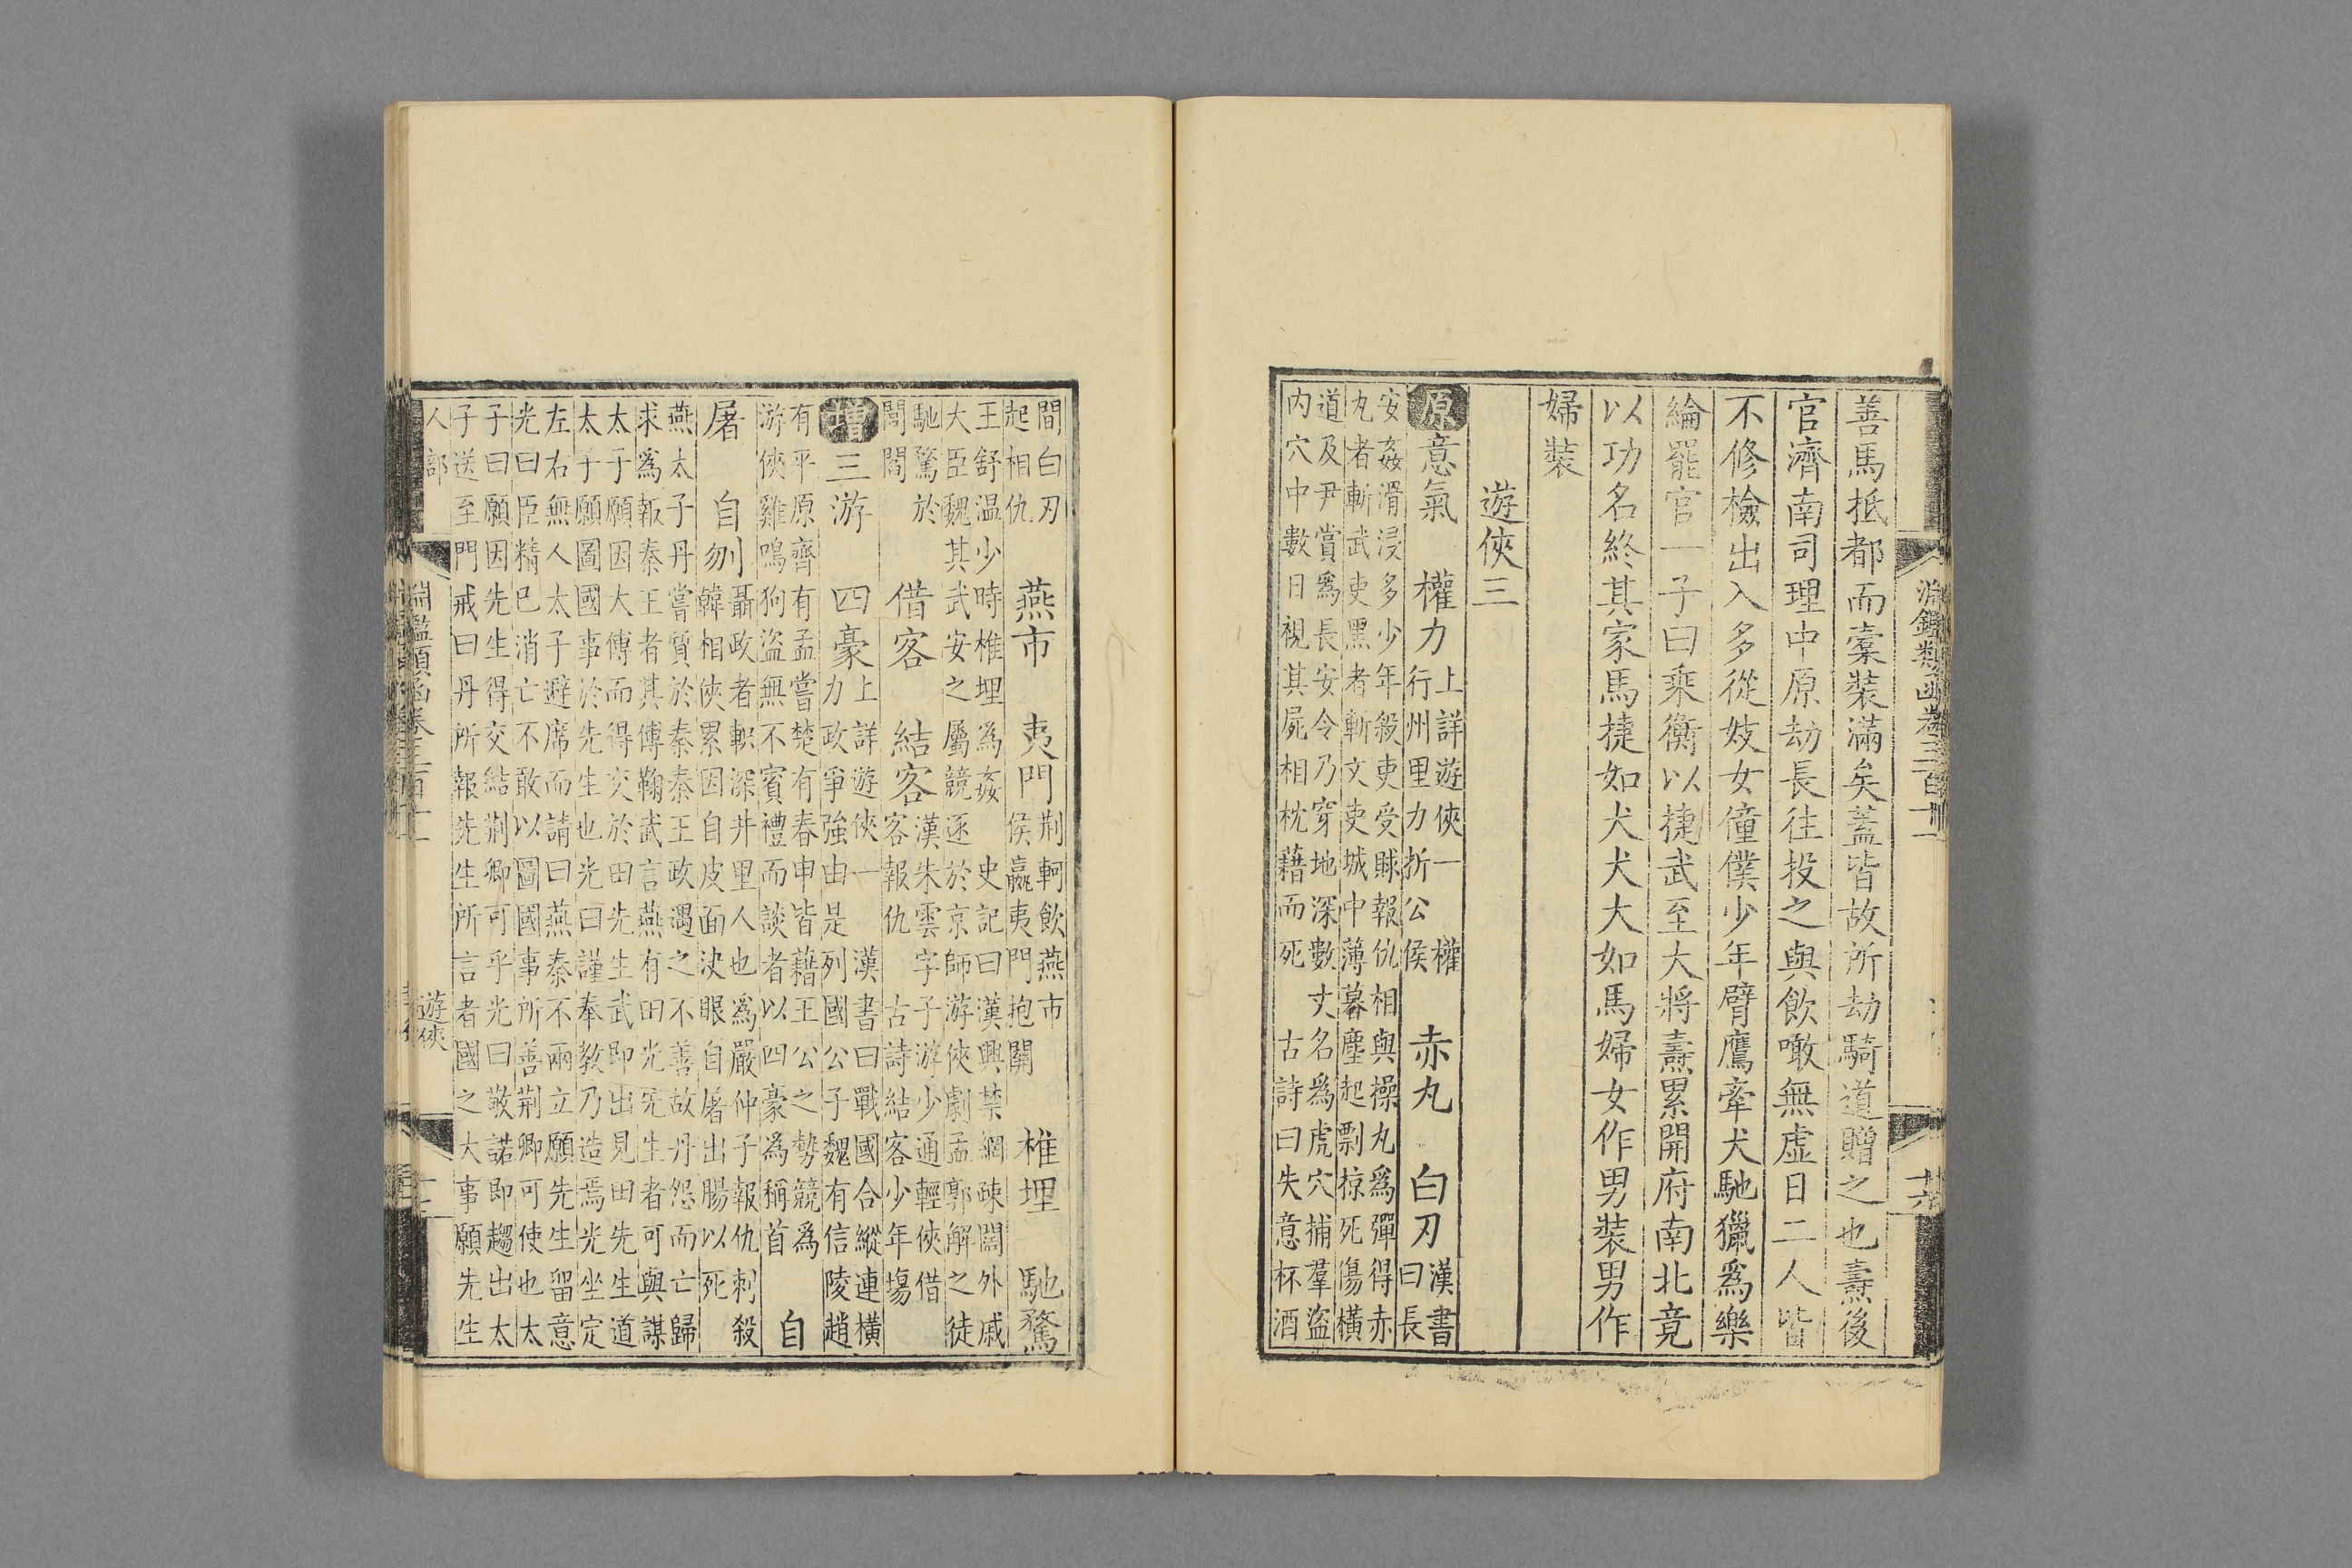 淵鑑類函卷三百十一
善馬抵都而橐裝滿矣蓋皆故所劫騎道贈之也燾後
官濟南司理中原劫長往投之與飲噉無虛日二人皆
不修檢出入多從妓女僮僕少年臂鷹牽犬馳獵爲樂
綸罷官一子曰乘衡以捷武至大將燾累開府南北竟
以功名終其家馬捷如犬犬大如馬婦女作男裝男作
婦裝
遊俠三
原意氣 權力上詳遊俠一 權行州里力折公侯 赤丸 白刃漢書曰長
安姦滑浸多少年殺吏受賕報仇相與操丸爲彈得赤
丸者斬武吏黑者斬文吏城中薄暮塵起剽掠死傷橫
道及尹賞爲長安令乃穿地深數丈名爲虎穴捕羣盜
內穴中數日視其屍相枕藉而死 古詩曰失意杯酒
間白刃起相仇 燕市 夷門荆軻飲燕市 侯嬴夷門抱關 椎埋 馳騖
王舒溫少時椎埋爲姦 史記曰漢興禁網疎闊外戚
大臣魏其武安之屬競逐於京師游俠劇孟郭解之徒
馳騖於閭閻 借客 結客漢朱雲字子游少通輕俠借客報仇 古詩結客少年塲
增三游 四豪上詳遊俠一 漢書曰戰國合縱連橫力政爭強由是列國公子魏有信陵趙
有平原齊有孟嘗楚有春申皆藉王公之勢競爲
游俠雞鳴狗盜無不賓禮而談者以四豪爲稱首 自
屠 自刎聶政者軹深井里人也爲嚴仲子報仇刺殺韓相俠累因自皮面決眼自屠出腸以死
燕太子丹嘗質於秦秦王政遇之不善故丹怨而亡歸
求爲報秦王者其傅鞠武言燕有田光先生者可與謀
太子願因太傅而得交於田先生武即出見田先生道
太子願圖國事於先生也光曰謹奉教乃造焉光坐定
左右無人太子避席而請曰燕秦不兩立願先生留意
光曰臣精已消亡不敢以圖國事所善荆卿可使也太
子曰願因先生得交結荆卿可乎光曰敬諾即趨出太
子送至門戒曰丹所報先生所言者國之大事願先生
人部
淵鑑類函卷三百十一
遊俠